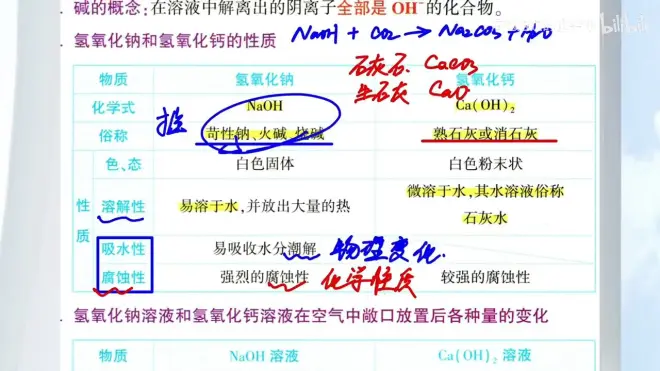 碱的概念:在溶液中解离出的阴离子全部是 OH⁻的化合物。
bilibili
. 氢氧化钠和氢氧化钙的性质 NaOH + CO₂ → Na₂CO₃ + H₂O
石灰石 CaCO₃
生石灰 CaO
物质 氢氧化钠 氢氧化钙
化学式 NaOH Ca(OH)₂
俗称 苛性钠、火碱、烧碱 熟石灰或消石灰
性质
色、态 白色固体 白色粉末状
溶解性 易溶于水,并放出大量的热 微溶于水,其水溶液俗称
石灰水
吸水性 易吸收水分潮解 物理变化.
腐蚀性 强烈的腐蚀性 化学性质 较强的腐蚀性
. 氢氧化钠溶液和氢氧化钙溶液在空气中敞口放置后各种量的变化
物质 NaOH 溶液 Ca(OH)₂ 溶液